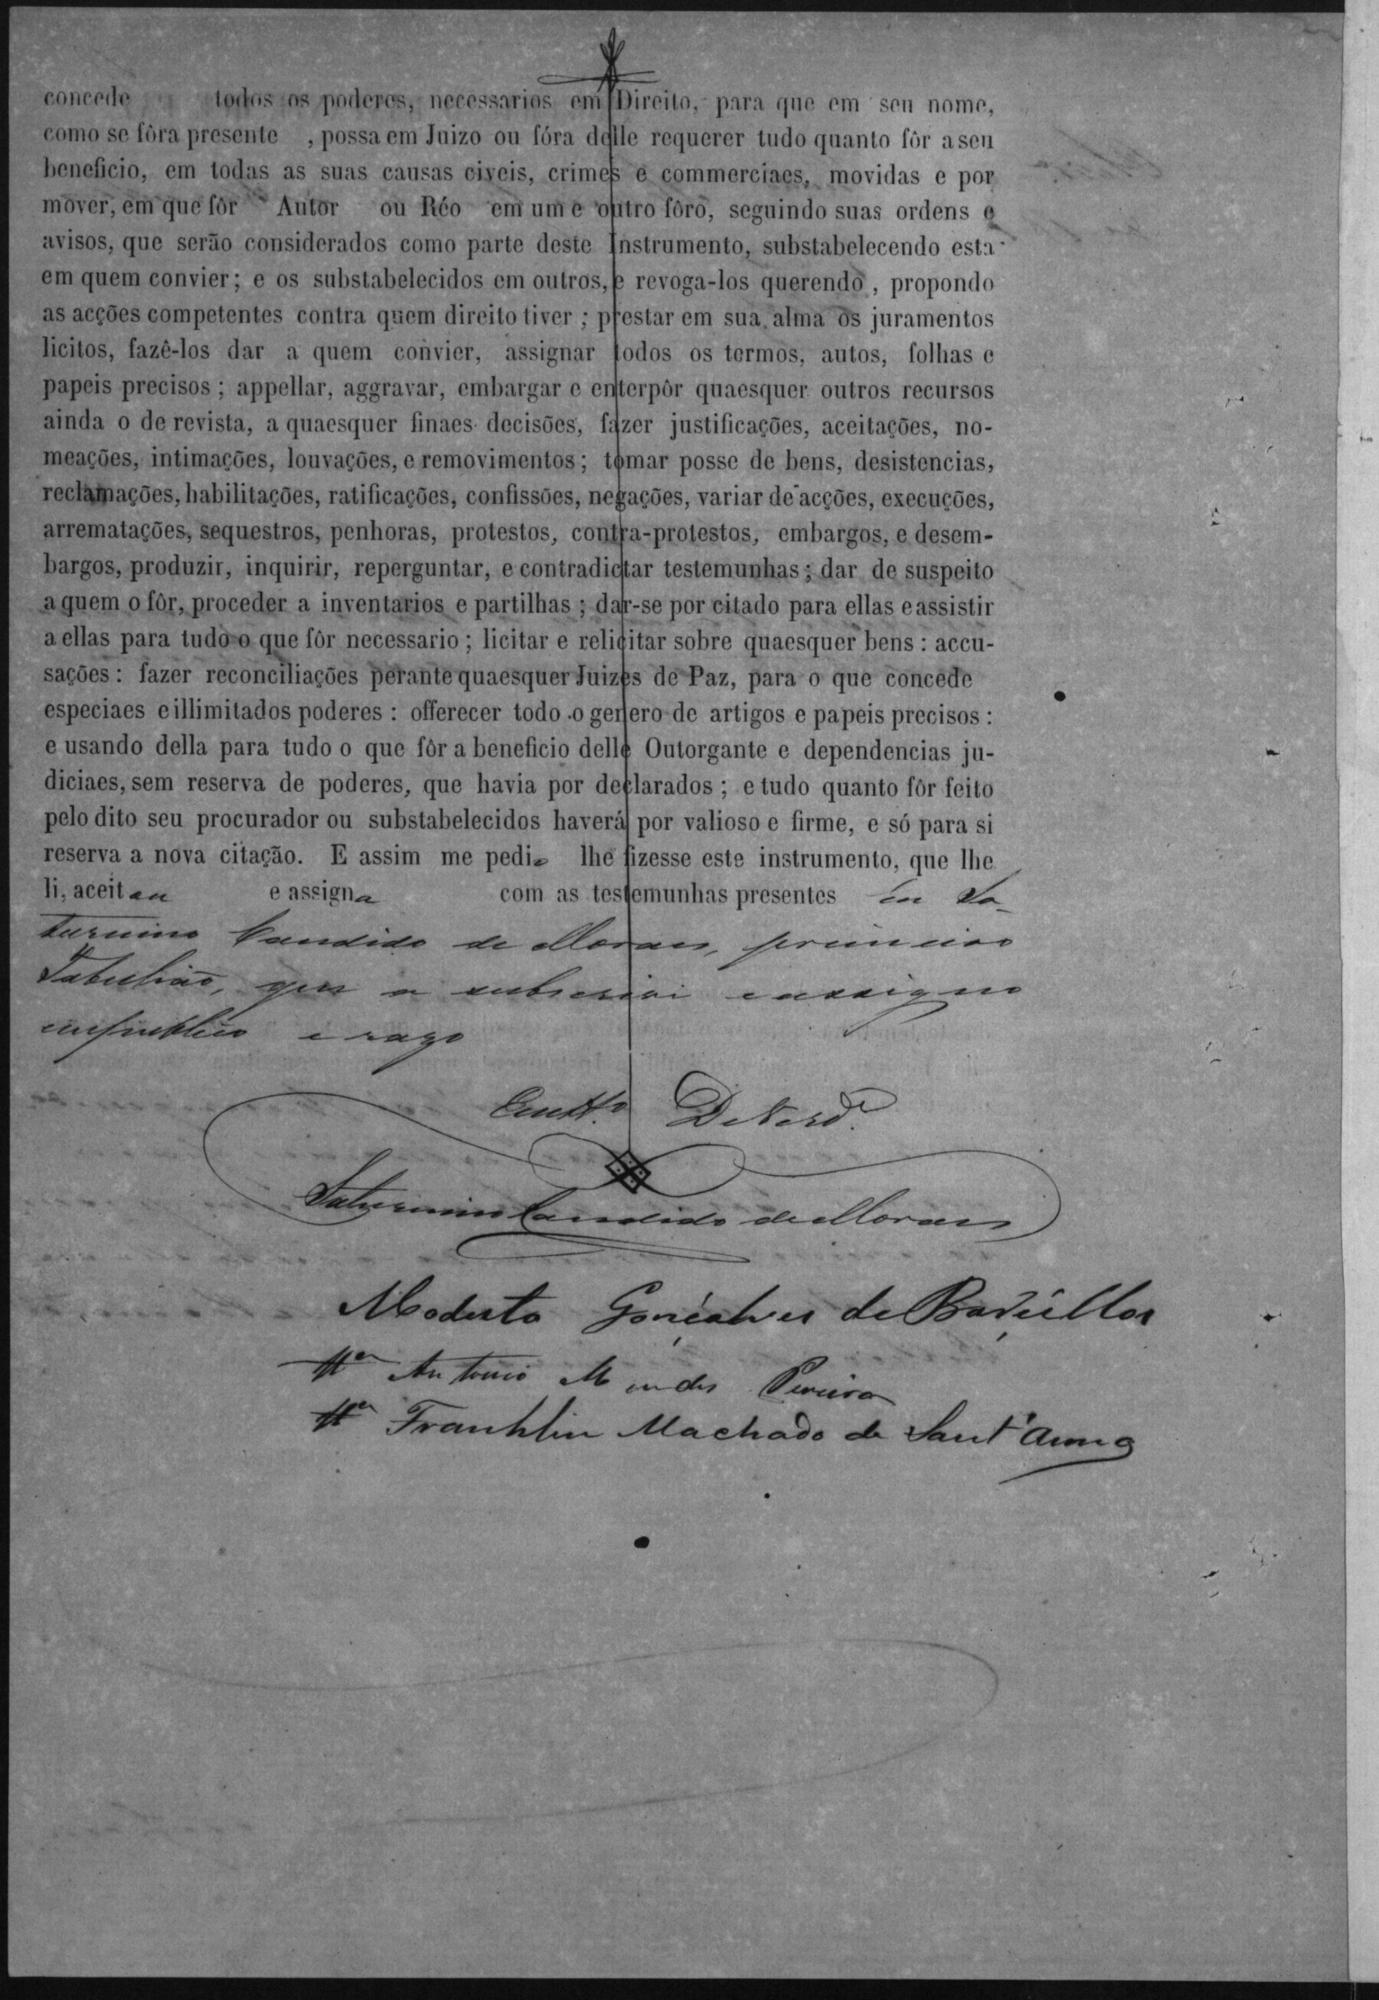 concede todos os poderes, necessarios em Direito, para que em seu nome,
como se fôra presente , possa em Juizo ou fóra delle requerer tudo quanto fôr a seu
beneficio, em todas as suas causas civeis, crimes e commerciaes, movidas e por
mover, em que fôr Autor ou Réo em um e outro fôro, seguindo suas ordens e
avisos, que serão considerados como parte deste Instrumento, substabelecendo esta
em quem convier; e os substabelecidos em outros, e revoga-los querendo , propondo
as acções competentes contra quem direito tiver ; prestar em sua alma os juramentos
licitos, fazê-los dar a quem convier, assignar todos os termos, autos, folhas e
papeis precisos ; appellar, aggravar, embargar e enterpôr quaesquer outros recursos
ainda o de revista, a quaesquer finaes decisões, fazer justificações, aceitações, no-
meações, intimações, louvações, e removimentos ; tomar posse de bens, desistencias,
reclamações, habilitações, ratificações, confissões, negações, variar de acções, execuções,
arrematações, sequestros, penhoras, protestos, contra-protestos, embargos, e desem-
bargos, produzir, inquirir, reperguntar, e contradictar testemunhas ; dar de suspeito
a quem o fôr, proceder a inventarios e partilhas ; dar-se por citado para ellas e assistir
a ellas para tudo o que fôr necessario ; licitar e relicitar sobre quaesquer bens : accu-
sações : fazer reconciliações perante quaesquer Juizes de Paz, para o que concede
especiaes e illimitados poderes : offerecer todo o genero de artigos e papeis precisos :
e usando della para tudo o que fôr a beneficio delle Outorgante e dependencias ju-
diciaes, sem reserva de poderes, que havia por declarados ; e tudo quanto fôr feito
pelo dito seu procurador ou substabelecidos haverá por valioso e firme, e só para si
reserva a nova citação. E assim me pedio lhe fizesse este instrumento, que lhe
li, aceitou e assigna com as testemunhas presentes Eu Sa-
turnino Candido de Moraes, primeiro
Tabelião, que a subscrevi e assigno
em publico e raso
Em tt.º Da Verd.e
Saturnino Candido de Moraes
Modesto Gonçalves de
Antonio Mendes Pereira
Franklin Machado de Sant'Anna